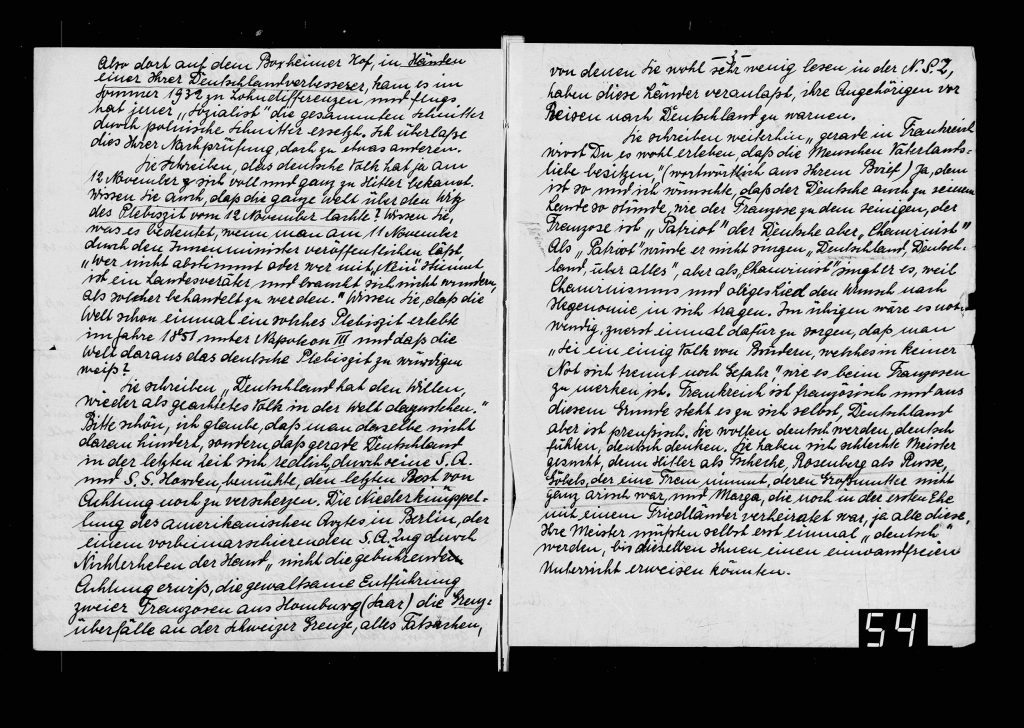 Also dort auf dem Boxheimer Hof, in Händen
einer Ihrer Deutschlandverbesserer, kam es im
Sommer 1932 zu Lohndifferenzen und flugs
hat jener „Sozialist" die gesammten Schnitter
durch polnische Schnitter ersetzt. Ich überlaße
dies Ihrer Nachprüfung, doch zu etwas anderem.
Sie schreiben, das deutsche Volk hat ja am
12 November sich voll und ganz zu Hitler bekannt.
Wissen Sie auch, daß die ganze Welt über den Witz
des Plebiszit vom 12 November lachte? Wissen Sie,
was es bedeutet, wenn man am 11 November
durch den Innenminister veröffentlichen läßt,
„Wer nicht abstimmt oder wer mit „Nein" stimmt
ist ein Landesveräter und braucht sich nicht wundern,
als solcher behandelt zu werden." Wissen Sie, daß die
Welt schon einmal ein solches Plebiszit erlebte
im Jahre 1851 unter Napoleon III und daß die
Welt daraus das deutsche Plebiszit zu würdigen
weiß?
Sie schreiben „Deutschland hat den Willen,
wieder als geachtetes Volk in der Welt dazustehen."
Bitte schön, ich glaube, daß man dasselbe nicht
daran hindern, sondern daß gerade Deutschland
in der letzten Zeit sich redlich, durch seine S.A.
und S.S. Horden, bemühte, den letzten Rest von
Achtung noch zu verscherzen. Die Niederknüppel-
lung des amerikanischen Arztes in Berlin, der
einem vorbeimarschierenden S.A. Zug durch
Nichterheben der Hand „nicht die gebührende
Achtung erwiß, die gewaltsame Entführung
zweier Franzosen aus Homburg (Saar) die Grenz-
überfälle an der Schweizer Grenze, alles Tatsachen,
3
von denen Sie wohl sehr wenig lesen in der N.S.Z,
haben diese Länder veranlaßt, ihre Angehörigen vor
Reisen nach Deutschland zu warnen.
Sie schreiben weiterhin, „gerade in Frankreich
wirst Du es wohl erleben, daß die Menschen Vaterlands-
liebe besitzen," (wortwörtlich aus Ihrem Brief) Ja, dem
ist so und ich wünschte, daß der Deutsche auch zu seinem
Lande so stünde, wie der Franzose zu dem seinigen, der
Franzose ist „Patriot" der Deutsche aber „Chauvinist"
Als „Patriot" würde er nicht singen „Deutschland, Deutsch-
land, über alles", aber als „Chauvinist" singt er es, weil
Chauvinismus und obiges Lied den Wunsch nach
Hegemonie in sich tragen. Im übrigen wäre es not-
wendig, zuerst einmal dafür zu sorgen, daß man
„Sei ein einig Volk von Brüdern, welches in keiner
Not sich trennt noch Gefahr" wie es beim Franzosen
zu merken ist. Frankreich ist französisch und aus
diesem Grunde steht es zu sich selbst, Deutschland
aber ist preußisch. Sie wollen deutsch werden, deutsch
fühlen, deutsch denken. Sie haben sich schlechte Meister
gesucht, denn Hitler als Tscheche, Rosenberg als Russe,
Göbels, der eine Frau nimmt, deren Großmutter nicht
ganz arisch war, und Marga, die noch in der ersten Ehe
mit einem Friedländer verheiratet war, ja alle diese,
Ihre Meister müßten selbst erst einmal „deutsch"
werden, bis dieselben Ihnen einen einwandfreien
Unterricht erweisen könnten.
54